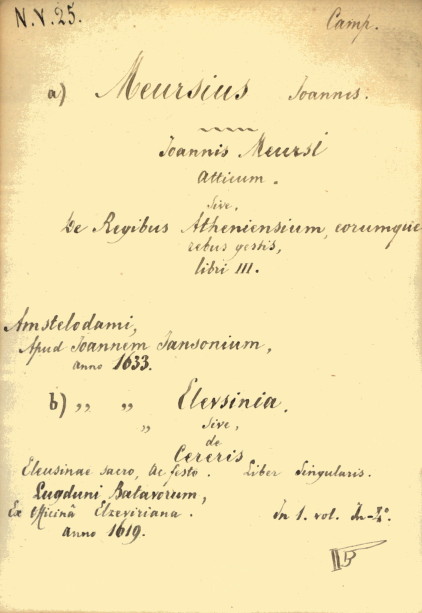 N.V.25.
Camp.
a) Meursius Ioannis.
Ioannis Meursi
Atticum.
Sive,
De Regibus Atheniensium, eorumque
rebus gestis,
libri III.
Amstelodami,
Apud Ioannem Iansonium,
anno 1633.
b) ,, ,, Elevsinia.
,, Sive,
de
Cereris
Eleusinae sacro, ac festo. Liber Singularis.
Lugduni Batavorum,
Ex Officinâ Elzeviriana. In 1. vol. In-4°.
anno 1619.